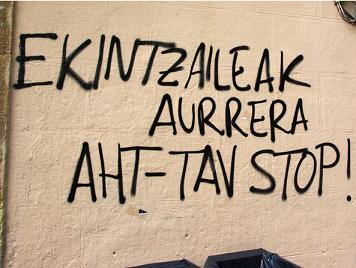 EKINTZAILEAK
AURRERA
AHT-TAV STOP!